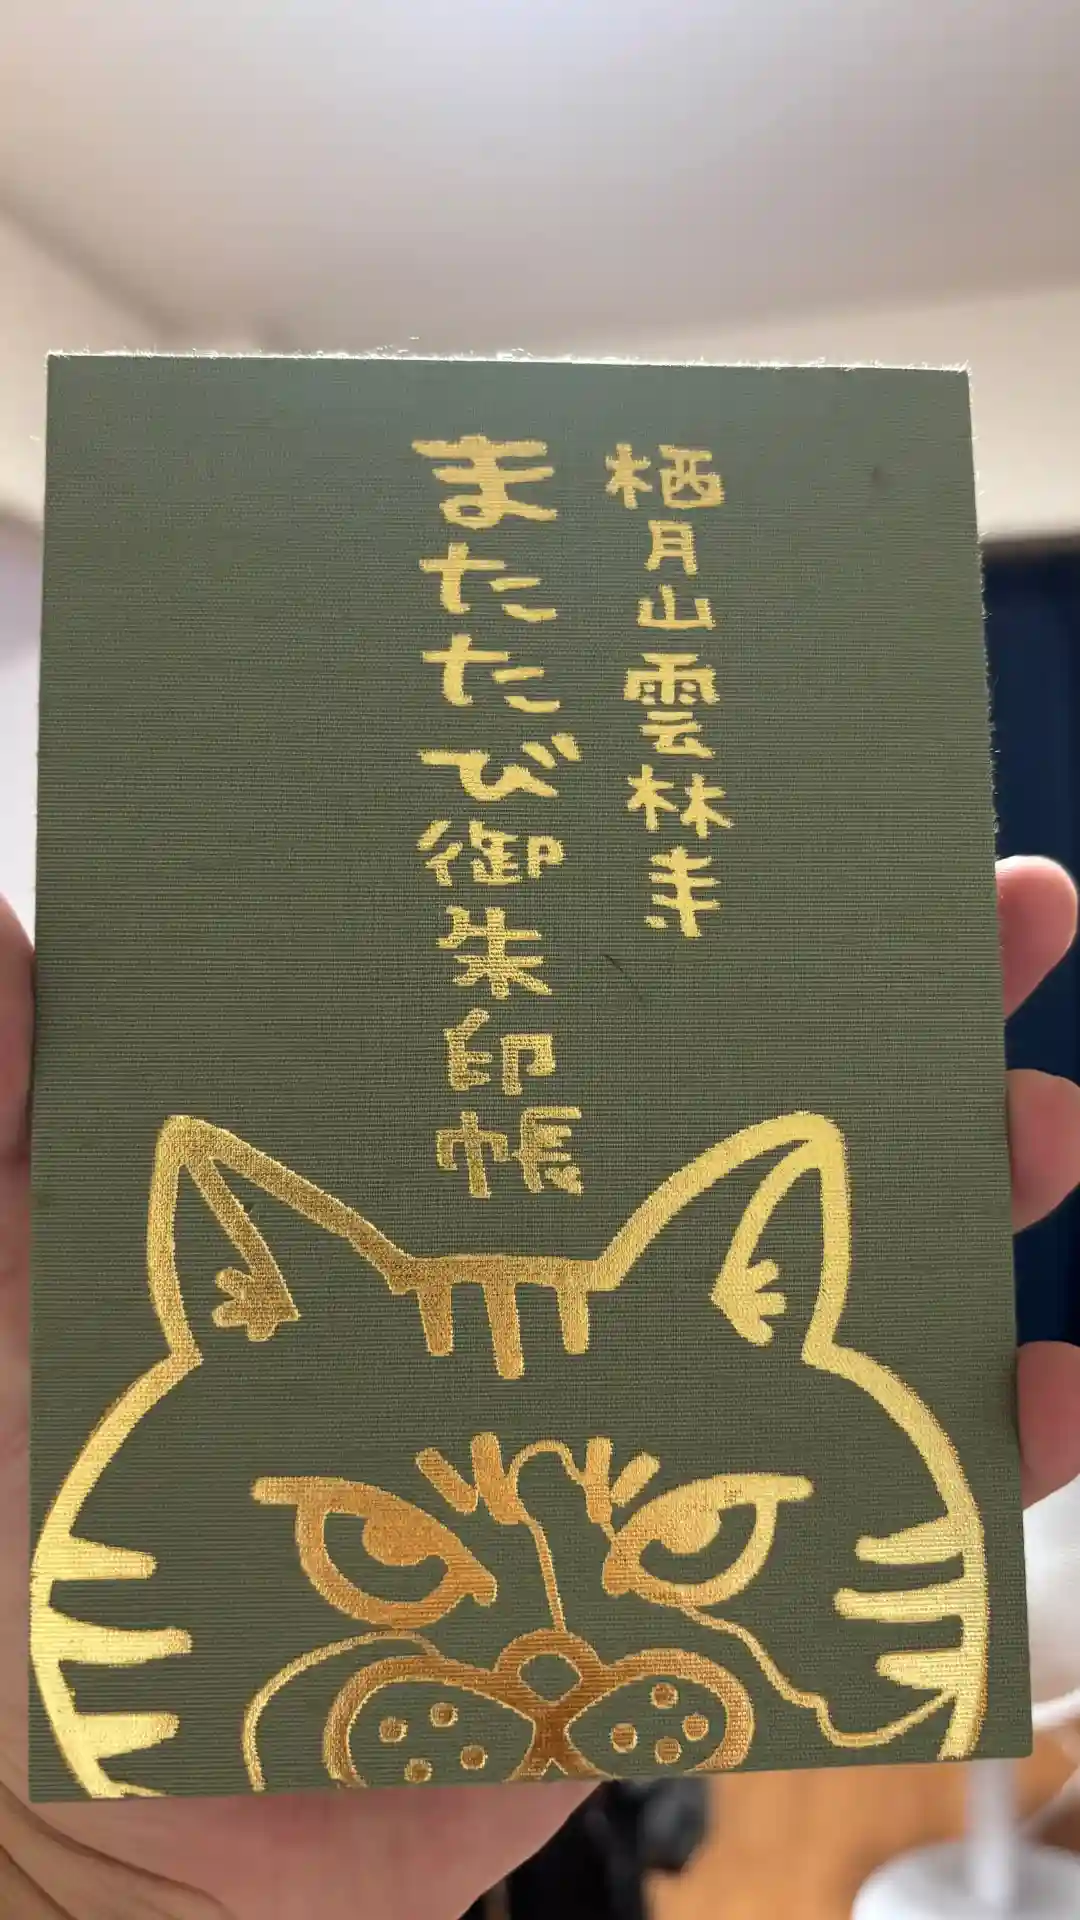 栖月山雲林寺
またたび御朱印帳